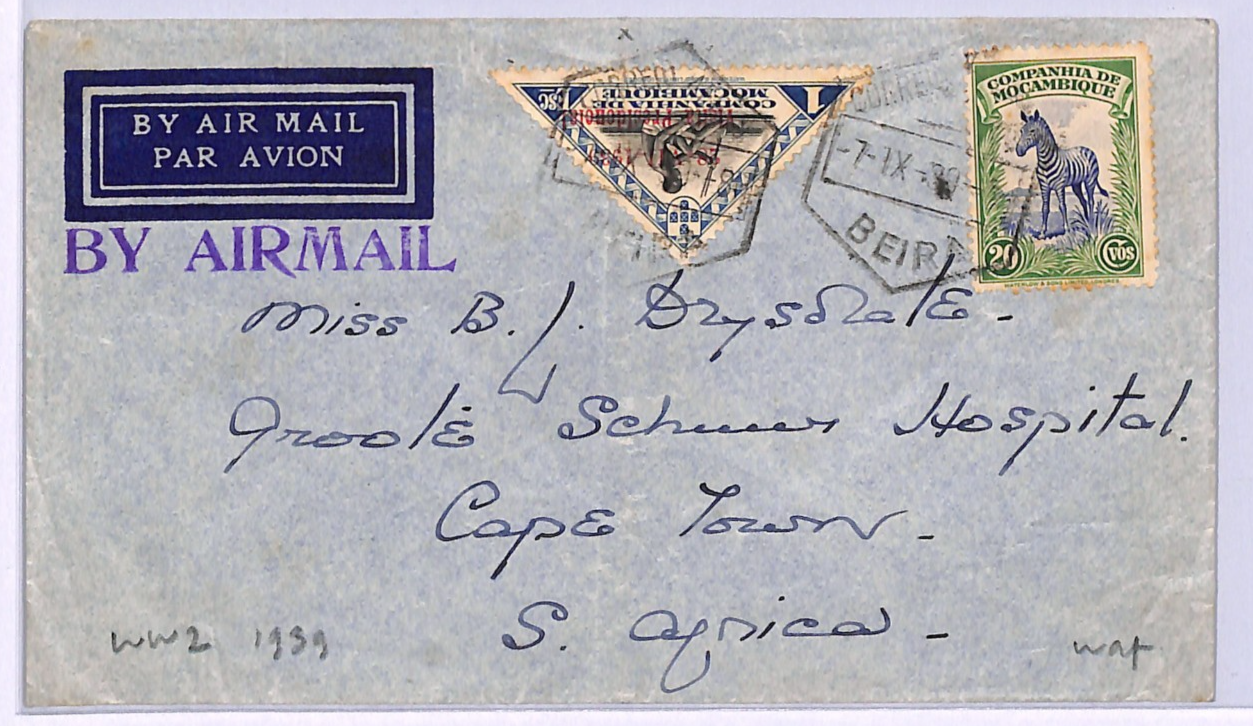 BY AIR MAIL
PAR AVION
BY AIRMAIL
1 ESC
COMPANHIA DE
MOÇAMBIQUE
Visita Presidencial
CORREIO
-7-IX-39-
BEIRA
COMPANHIA DE
MOÇAMBIQUE
20 CVOS
WATERLOW & SONS LIMITED, LONDRES.
Miss B. J. Drysdale -
Groote Schuur Hospital.
Cape Town -
S. Africa -
WW2 1939